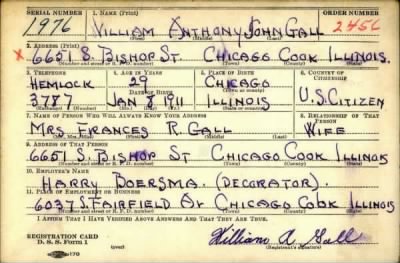 SERIAL NUMBER 1. NAME (Print) ORDER NUMBER
1976 WILLIAM ANTHONY JOHN GALL 2456
(First) (Middle) (Last)
2. ADDRESS (Print)
x 6651 S. BISHOP ST. CHICAGO COOK ILLINOIS.
(Number and street or R. F. D. number) (Town) (County) (State)
3. TELEPHONE 4. AGE IN YEARS 5. PLACE OF BIRTH 6. COUNTRY OF CITIZENSHIP
HEMLOCK 29 CHICAGO
DATE OF BIRTH
3787 JAN 8 1911 ILLINOIS U.S. CITIZEN
(Exchange) (Number) (Mo.) (Day) (Yr.) (State or country)
7. NAME OF PERSON WHO WILL ALWAYS KNOW YOUR ADDRESS 8. RELATIONSHIP OF THAT PERSON
MRS. FRANCES R. GALL WIFE
(Mr., Mrs., Miss) (First) (Middle) (Last)
9. ADDRESS OF THAT PERSON
6651 S. BISHOP ST CHICAGO COOK ILLINOIS
(Number and street or R. F. D. number) (Town) (County) (State)
10. EMPLOYER'S NAME
HARRY BOERSMA. (DECORATOR).
11. PLACE OF EMPLOYMENT OR BUSINESS
6037 S. FAIRFIELD AV CHICAGO COOK ILLINOIS
(Number and street or R. F. D. number) (Town) (County) (State)
I AFFIRM THAT I HAVE VERIFIED ABOVE ANSWERS AND THAT THEY ARE TRUE.
REGISTRATION CARD
D. S. S. Form 1 (over) William A. Gall
(Registrant's signature)